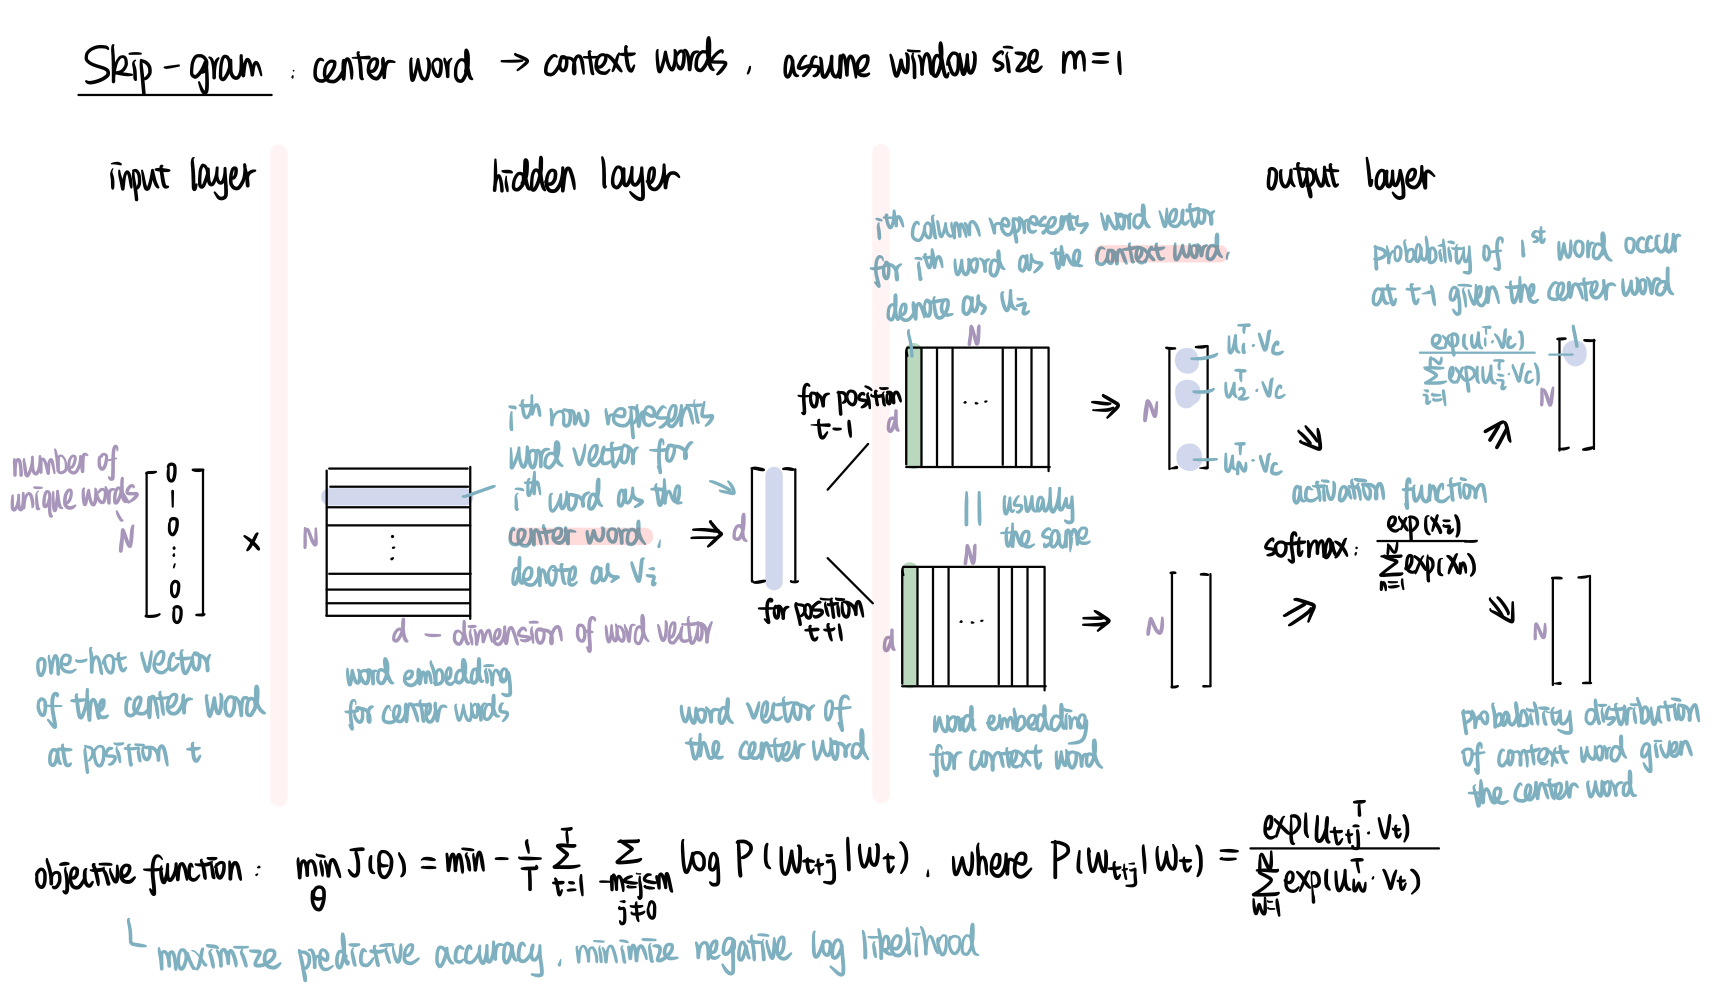 Skip-gram : center word → context words, assume window size m=1
input layer
hidden layer
output layer
number of
unique words
N
0
1
0
⋮
0
0
one-hot vector
of the center word
at position t
x
N
⋮
d - dimension of word vector
word embedding
for center words
i^th row represents
word vector for
i^th word as the
center word,
denote as V_i
⇒
d
word vector of
the center word
for position
t-1
for position
t+1
i^th column represents word vector
for i^th word as the context word,
denote as U_i
N
d
...
|| usually
the same
N
d
...
word embedding
for context word
⇒
N
u_1^T · V_c
u_2^T · V_c
u_N^T · V_c
⇒
N
activation function
softmax: exp(x_i) / Σ_{n=1}^{N} exp(x_n)
probability of 1^st word occur
at t-1 given the center word
exp(u_1^T · V_c) / Σ_{i=1}^{N} exp(u_i^T · V_c)
N
N
probability distribution
of context word given
the center word
objective function: min_θ J(θ) = min - 1/T Σ_{t=1}^{T} Σ_{-m≤j≤m, j≠0} log P(W_{t+j} | W_t), where P(W_{t+j} | W_t) = exp(U_{t+j}^T · V_t) / Σ_{w=1}^{N} exp(U_w^T · V_t)
maximize predictive accuracy, minimize negative log likelihood